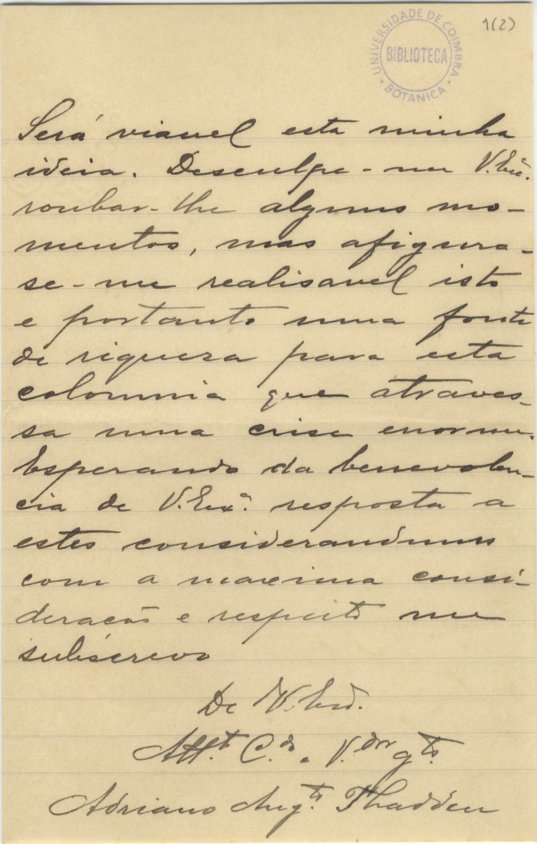 1(2)
UNIVERSIDADE DE COIMBRA
BIBLIOTECA
BOTANICA
Será viavel esta minha
ideia. Desculpe-me V. Exª.
roubar-lhe alguns mo-
mentos, mas afigura-
se-me realisavel isto
e portanto uma fonte
de riqueza para esta
colonnia que atraves-
sa uma crise enorme.
Esperando da benevolen-
cia de V. Exª. resposta a
estes considerandums
com a maxima consi-
deracão e respeito me
subscrevo
De V. Exª.
Attº. C.do e V.dor g.to
Adriano Aug.to Thadden